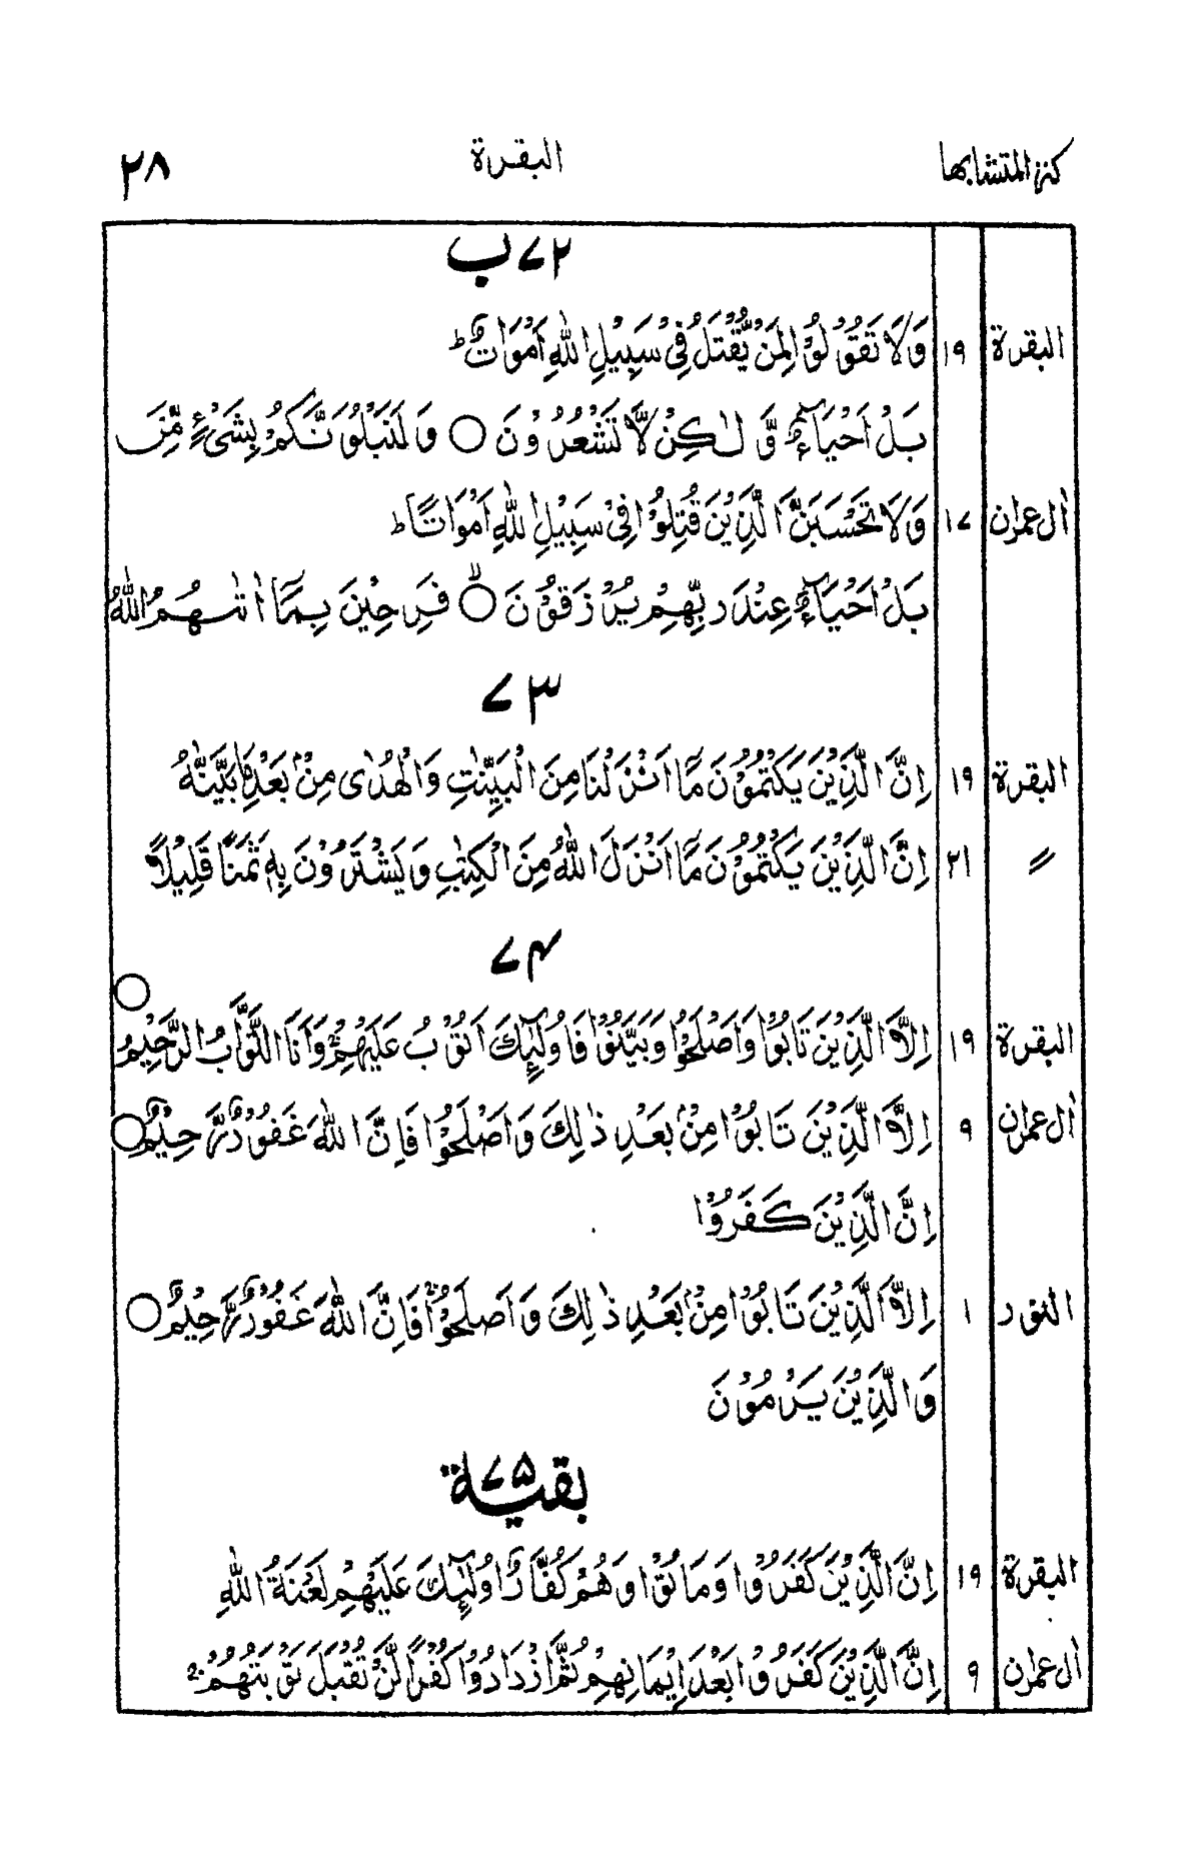 كنز المتشابها البقرة ٢٨
٧٢ ب
البقرة ١٩ وَلَا تَقُوْلُوْا لِمَنْ يُّقْتَلُ فِيْ سَبِيْلِ اللّٰهِ اَمْوَاتٌ ؕ
بَلْ اَحْيَآءٌ وَّ لٰكِنْ لَّا تَشْعُرُوْنَ ○ وَلَنَبْلُوَنَّكُمْ بِشَیْءٍ مِّنَ
اٰل عمران ١٧ وَلَا تَحْسَبَنَّ الَّذِيْنَ قُتِلُوْا فِيْ سَبِيْلِ اللّٰهِ اَمْوَاتًا ؕ
بَلْ اَحْيَآءٌ عِنْدَ رَبِّهِمْ يُرْزَقُوْنَ ○ۙ فَرِحِيْنَ بِمَآ اٰتٰىهُمُ اللّٰهُ
٧٣
البقرة ١٩ اِنَّ الَّذِيْنَ يَكْتُمُوْنَ مَآ اَنْزَلْنَا مِنَ الْبَيِّنٰتِ وَالْهُدٰى مِنْۢ بَعْدِ مَا بَيَّنّٰهُ
〃 ٢١ اِنَّ الَّذِيْنَ يَكْتُمُوْنَ مَآ اَنْزَلَ اللّٰهُ مِنَ الْكِتٰبِ وَيَشْتَرُوْنَ بِهٖ ثَمَنًا قَلِيْلًا
٧٤
البقرة ١٩ اِلَّا الَّذِيْنَ تَابُوْا وَاَصْلَحُوْا وَبَيَّنُوْا فَاُولٰٓئِكَ اَتُوْبُ عَلَيْهِمْ ۚ وَاَنَا التَّوَّابُ الرَّحِيْمُ ○
اٰل عمران ٩ اِلَّا الَّذِيْنَ تَابُوْا مِنْۢ بَعْدِ ذٰلِكَ وَاَصْلَحُوْا فَاِنَّ اللّٰهَ غَفُوْرٌ رَّحِيْمٌ ○
اِنَّ الَّذِيْنَ كَفَرُوْا
النور ١ اِلَّا الَّذِيْنَ تَابُوْا مِنْۢ بَعْدِ ذٰلِكَ وَاَصْلَحُوْا ۚ فَاِنَّ اللّٰهَ غَفُوْرٌ رَّحِيْمٌ ○
وَالَّذِيْنَ يَرْمُوْنَ
بقية ٧٥
البقرة ١٩ اِنَّ الَّذِيْنَ كَفَرُوْا وَمَاتُوْا وَهُمْ كُفَّارٌ اُولٰٓئِكَ عَلَيْهِمْ لَعْنَةُ اللّٰهِ
اٰل عمران ٩ اِنَّ الَّذِيْنَ كَفَرُوْا بَعْدَ اِيْمَانِهِمْ ثُمَّ ازْدَادُوْا كُفْرًا لَّنْ تُقْبَلَ تَوْبَتُهُمْ ۚ